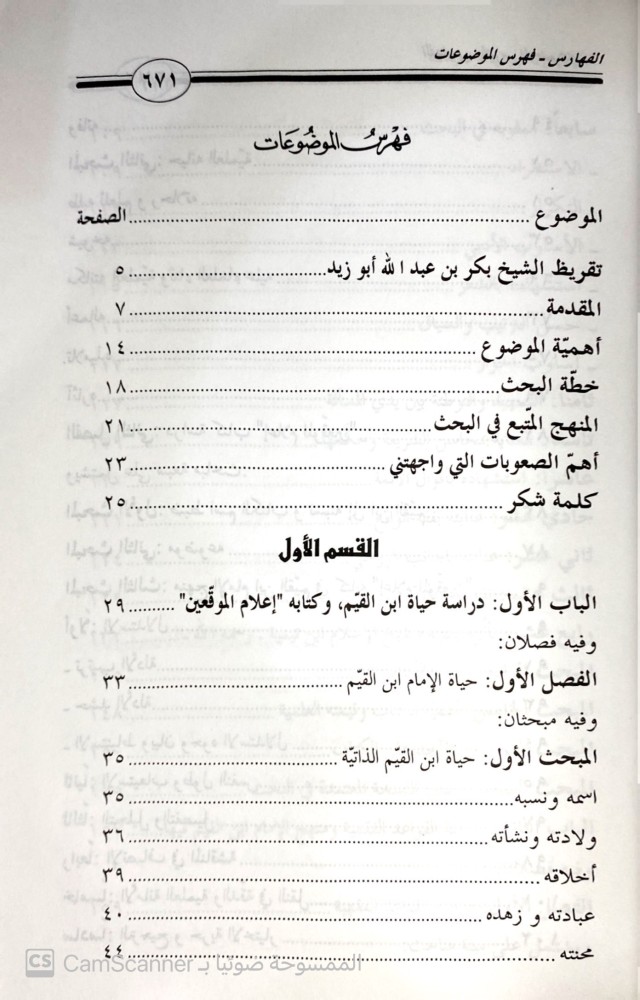 الفهارس - فهرس الموضوعات
٦٧١
فهْرسُ الموضُوعَات
الموضوع ........ الصفحة
تقريظ الشيخ بكر بن عبد الله أبو زيد ........ ٥
المقدمة ........ ٧
أهميّة الموضوع ........ ١٤
خطّة البحث ........ ١٨
المنهج المتّبع في البحث ........ ٢١
أهمّ الصعوبات التي واجهتني ........ ٢٣
كلمة شكر ........ ٢٥
القسم الأول
الباب الأول: دراسة حياة ابن القيّم، وكتابه "إعلام الموقّعين" ........ ٢٩
وفيه فصلان:
الفصل الأول: حياة الإمام ابن القيّم ........ ٣٣
وفيه مبحثان:
المبحث الأول: حياة ابن القيّم الذاتيّة ........ ٣٥
اسمه ونسبه ........ ٣٥
ولادته ونشأته ........ ٣٦
أخلاقه ........ ٣٩
عبادته و زهده ........ ٤٠
محنته ........ ٤٤
CS CamScanner الممسوحة ضوئيا بـ